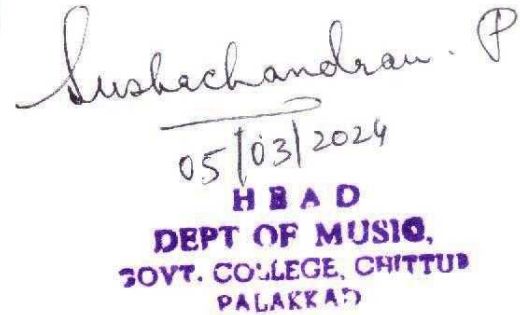 Sushachandran. P
05/03/2024
HEAD
DEPT OF MUSIC,
GOVT. COLLEGE, CHITTUR
PALAKKAD